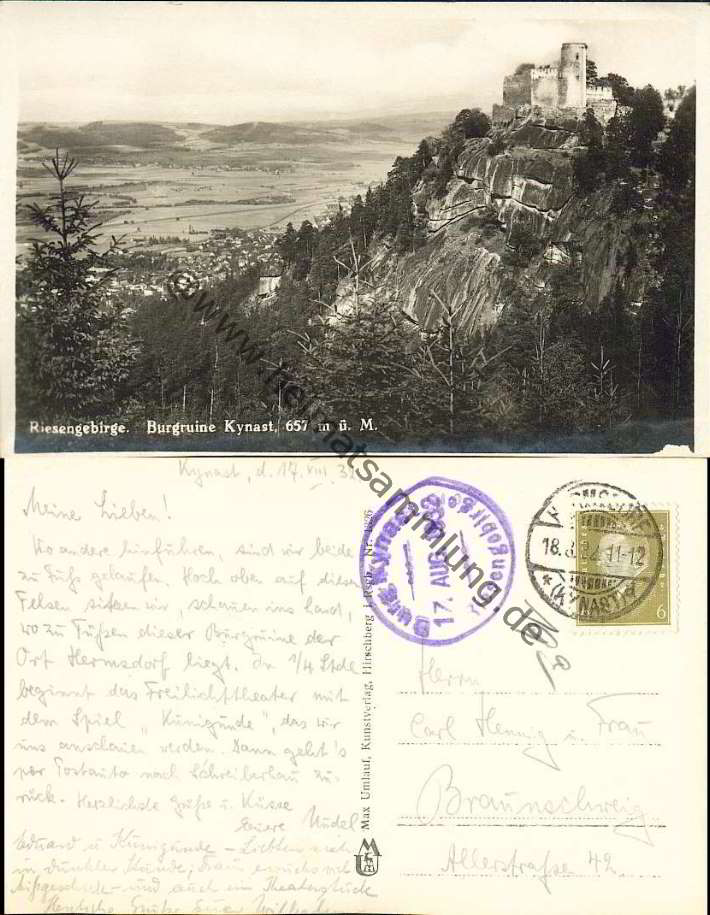 Riesengebirge. Burgruine Kynast, 657 m ü. M.
© www.heimatsammlung.de
Kynast, d. 17. VIII. 32.
Meine Lieben!
Wo andere hinfahren, sind wir beide
zu Fuß gelaufen. Hoch oben auf diesen
Felsen sitzen wir, schauen ins Land,
wo zu Füßen dieser Burgruine der
Ort Hermsdorf liegt. In 1/4 Stde
beginnt das Freilichttheater mit
dem Spiel „Kunigunde", das wir
uns anschauen werden. Dann geht's
per Postauto nach Schreiberhau zu-
rück. Herzlichste Grüße u. Küsse
Eure
u Kunigunde –
in dunkler
und auch ein Theaterstück
Max Umlauf, Kunstverlag, Hirschberg i. Rsgb. Nr.
Burg Kynast
17. AUG.
18. 8. 32 11-12
(KYNAST)
6
Herrn
Carl Hennig u. Frau
Braunschweig
Allerstraße 42